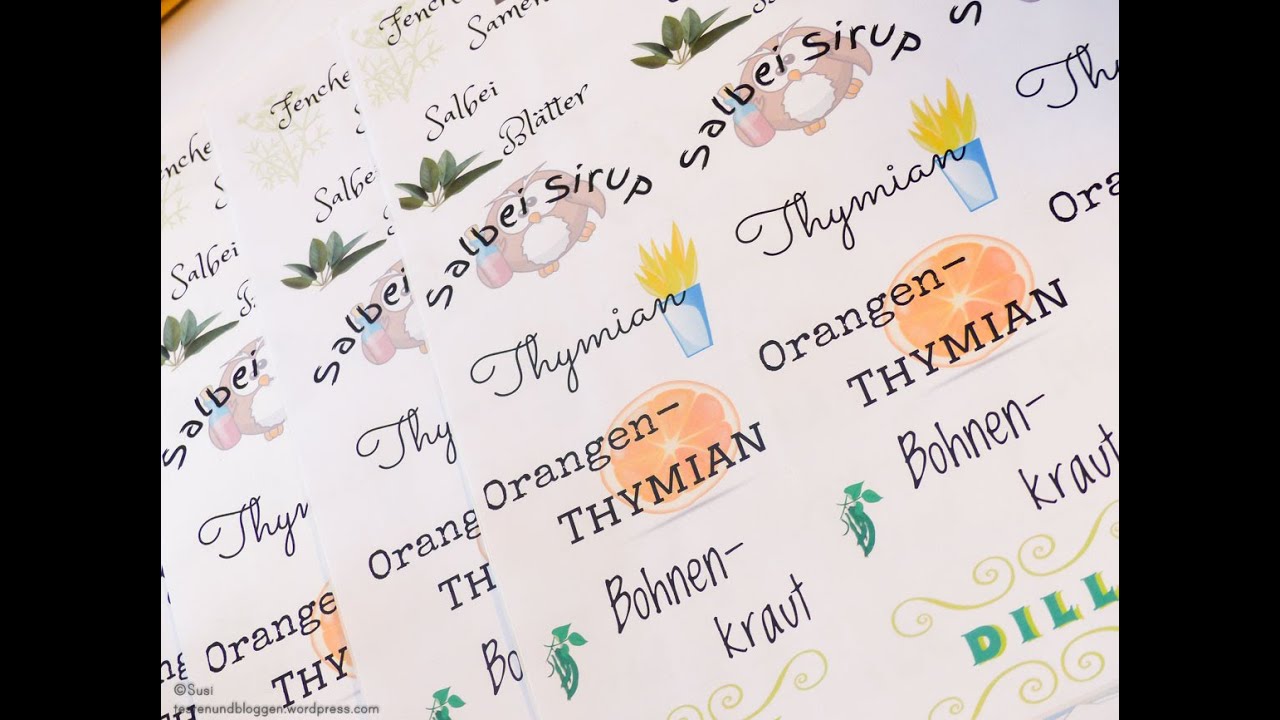 Fenchel
Samen
Salbei
Blätter
Salbei Sirup
Thymian
Orangen-
THYMIAN
Bohnen-
kraut
Salbei Sirup
Thymian
Orangen-
THYMIAN
Bohnen-
kraut
DILL
Fenche
Salbei
Salbei
Thy
Orang
TH
Bo
Fenche
Salbei
Salbei
Thym
Orange
THY
Th
Ora
©Susi
testenundbloggen.wordpress.com